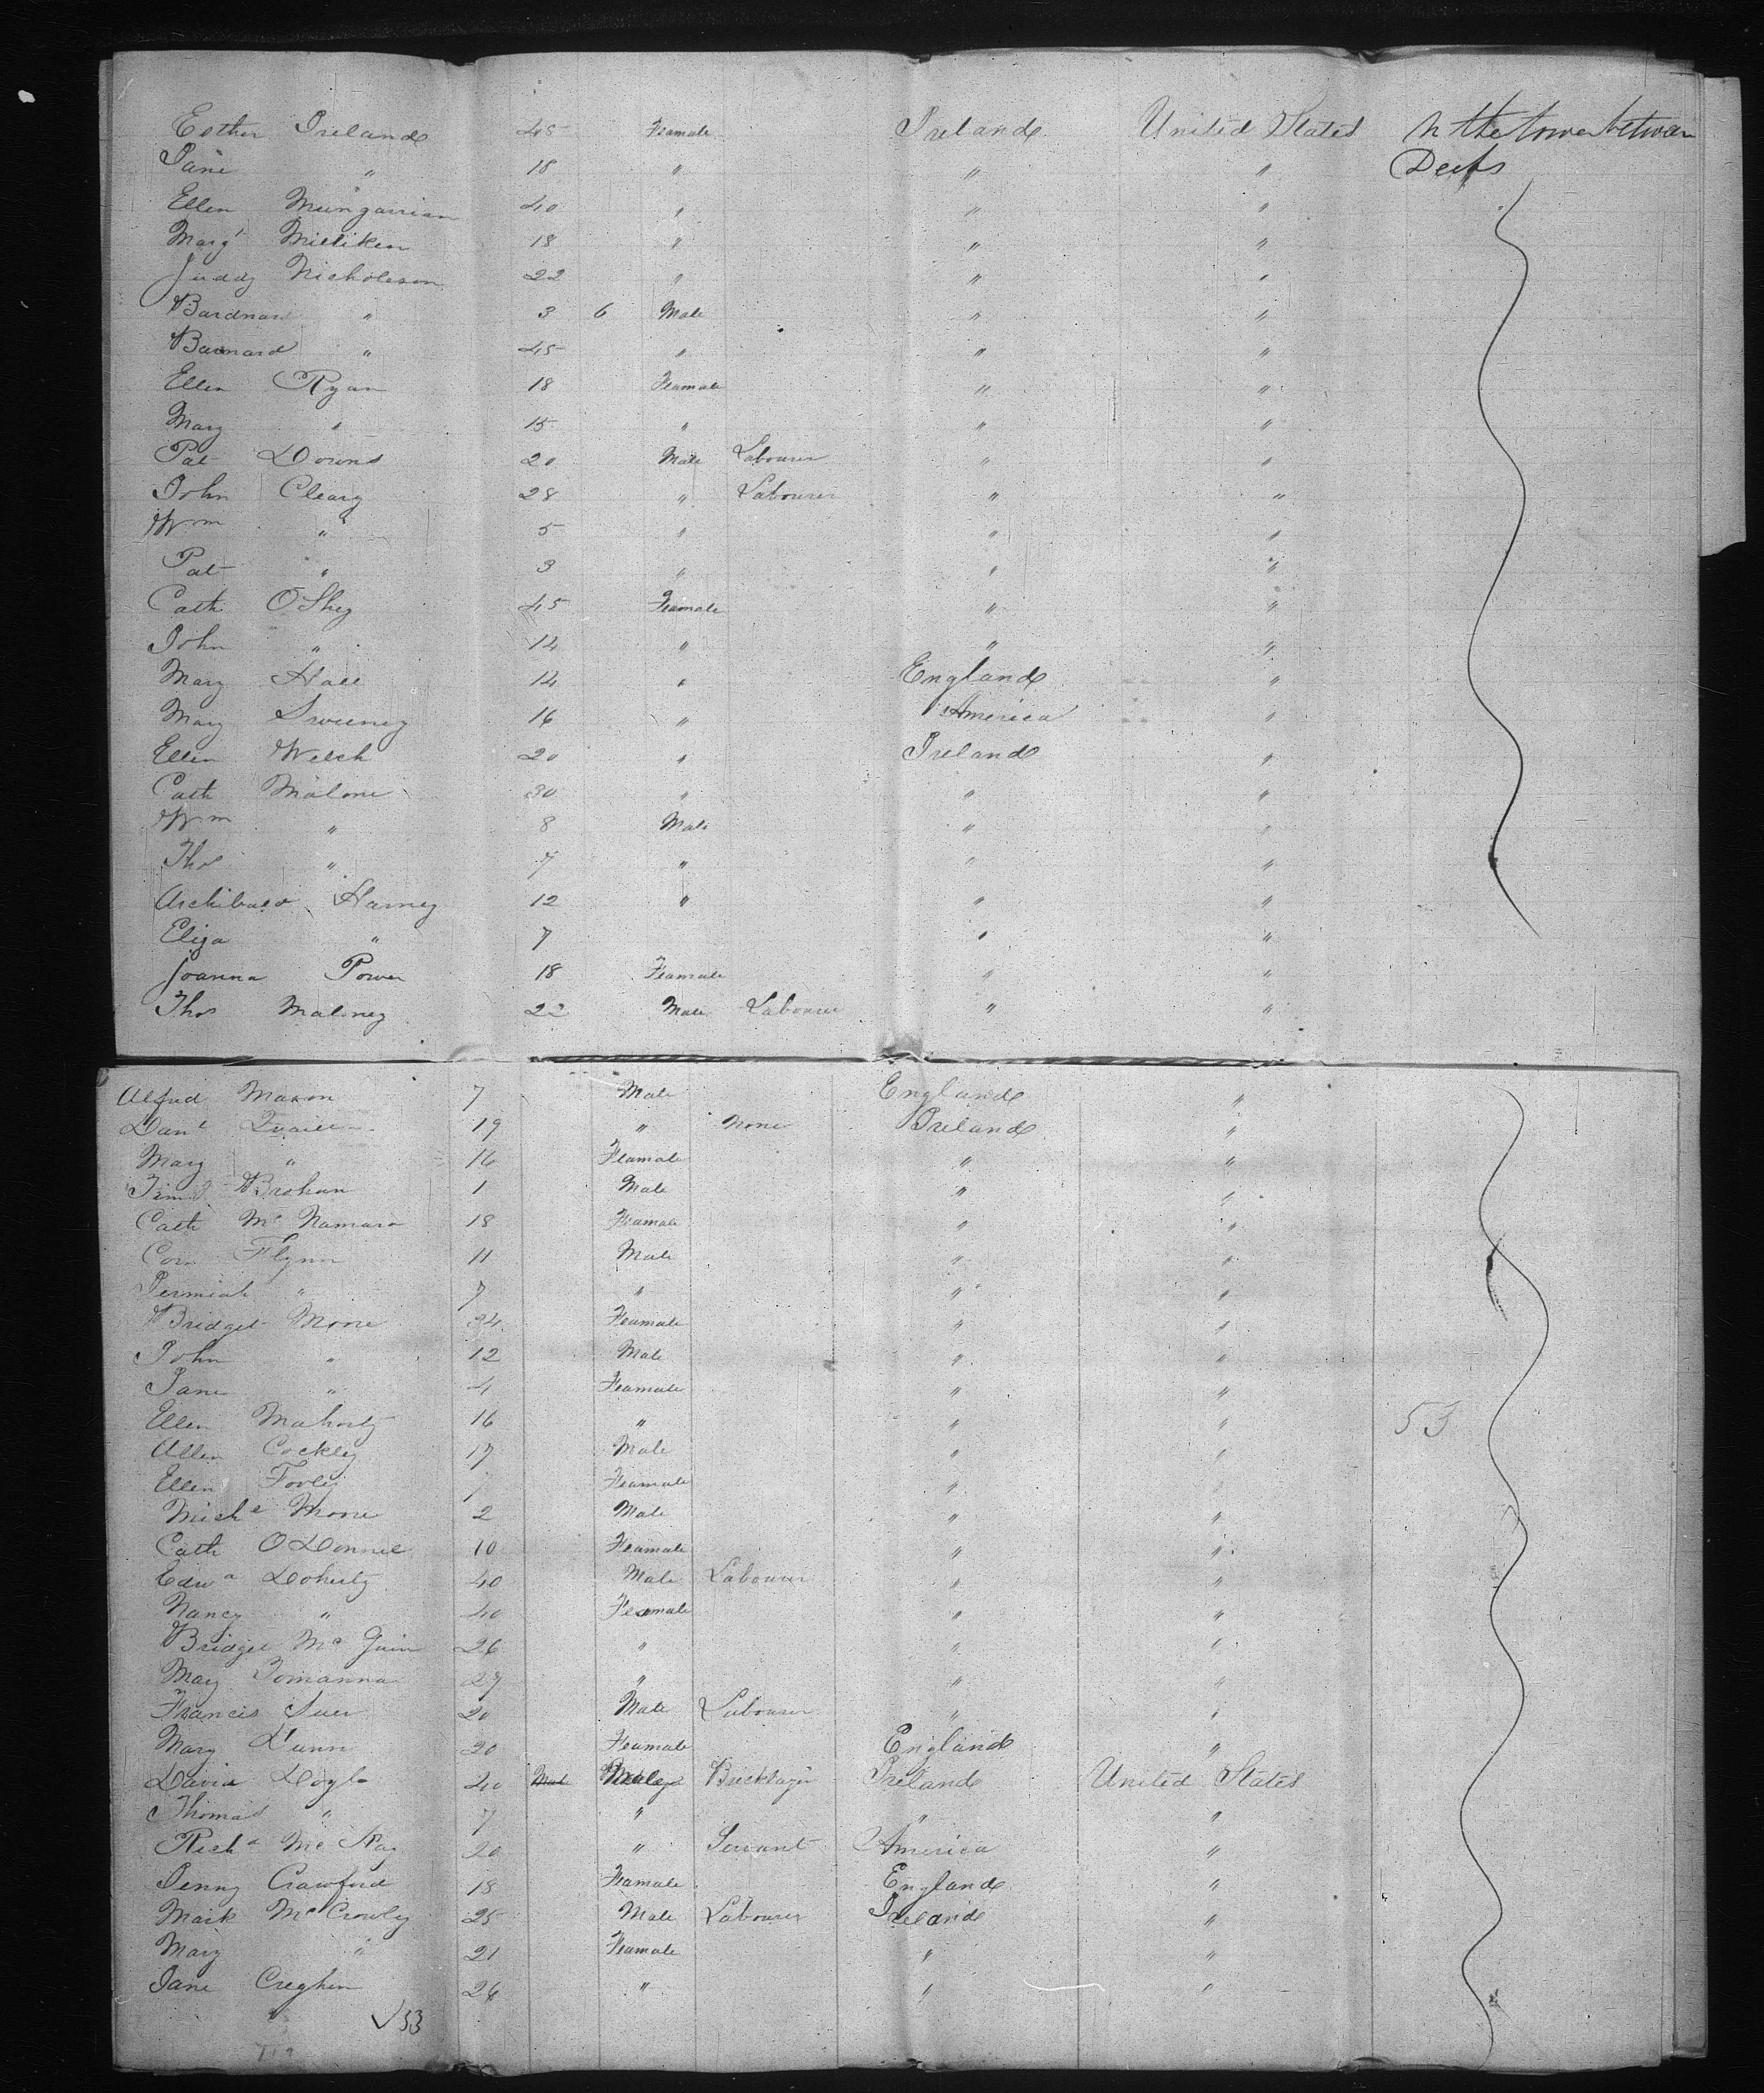 Esther Ireland 45 Feamale Ireland United States n the lower betwean
Jane " 18 " " " Decks
Ellen Mungarrian 40 " " "
Margt Milliken 18 " " "
Juddy Nicholson 22 " " "
Bardnard " 3 6 Male " "
Barnard " 45 " " "
Ellen Ryan 18 Feamale " "
Mary " 15 " " "
Pat Downs 20 Male Labourer " "
John Cleary 28 " Labourer " "
Wm " 5 " " "
Pat " 3 " " "
Cath O'Shey 45 Feamale " "
John " 14 " " "
Mary Hall 14 " England "
Mary Sweeney 16 " America "
Ellen Welch 20 " Ireland "
Cath Malone 30 " " "
Wm " 8 Male " "
Thos " 7 " " "
Archibald Harney 12 " " "
Eliza " 7 " "
Joanna Power 18 Feamale " "
Thos Maloney 22 Male Labourer " "
Alfred Mason 7 Male England "
Danl 19 " None Ireland "
Mary " 16 Feamale " "
Brohan 1 Male " "
Cath McNamara 18 Feamale " "
Corn Flynn 11 Male " "
Jermiah " 7 " " "
Bridget Moore 34 Feamale " "
John " 12 Male " "
Jane " 4 Feamale " "
Ellen 16 " " " 53
Allen Cockley 17 Male " "
Ellen Fooley 7 Feamale " "
Michl Moore 2 Male " "
Cath O Donnel 10 Feamale " "
Edwd Doherty 40 Male Labourer " "
Nancy " 40 Feamale " "
Bridget Mc 26 " " "
Mary 27 " " "
Francis 20 Male Labourer " "
Mary Dunn 20 Feamale England "
David Doyle 40 Male Bricklayer Ireland United States
Thomas " 7 " " "
Richd McKay 20 " Servant America "
Jenny Crawford 18 Feamale England "
Mark McCrowly 25 Male Labourer Ireland "
Mary " 21 Feamale " "
Jane Creghen 26 " " "
53